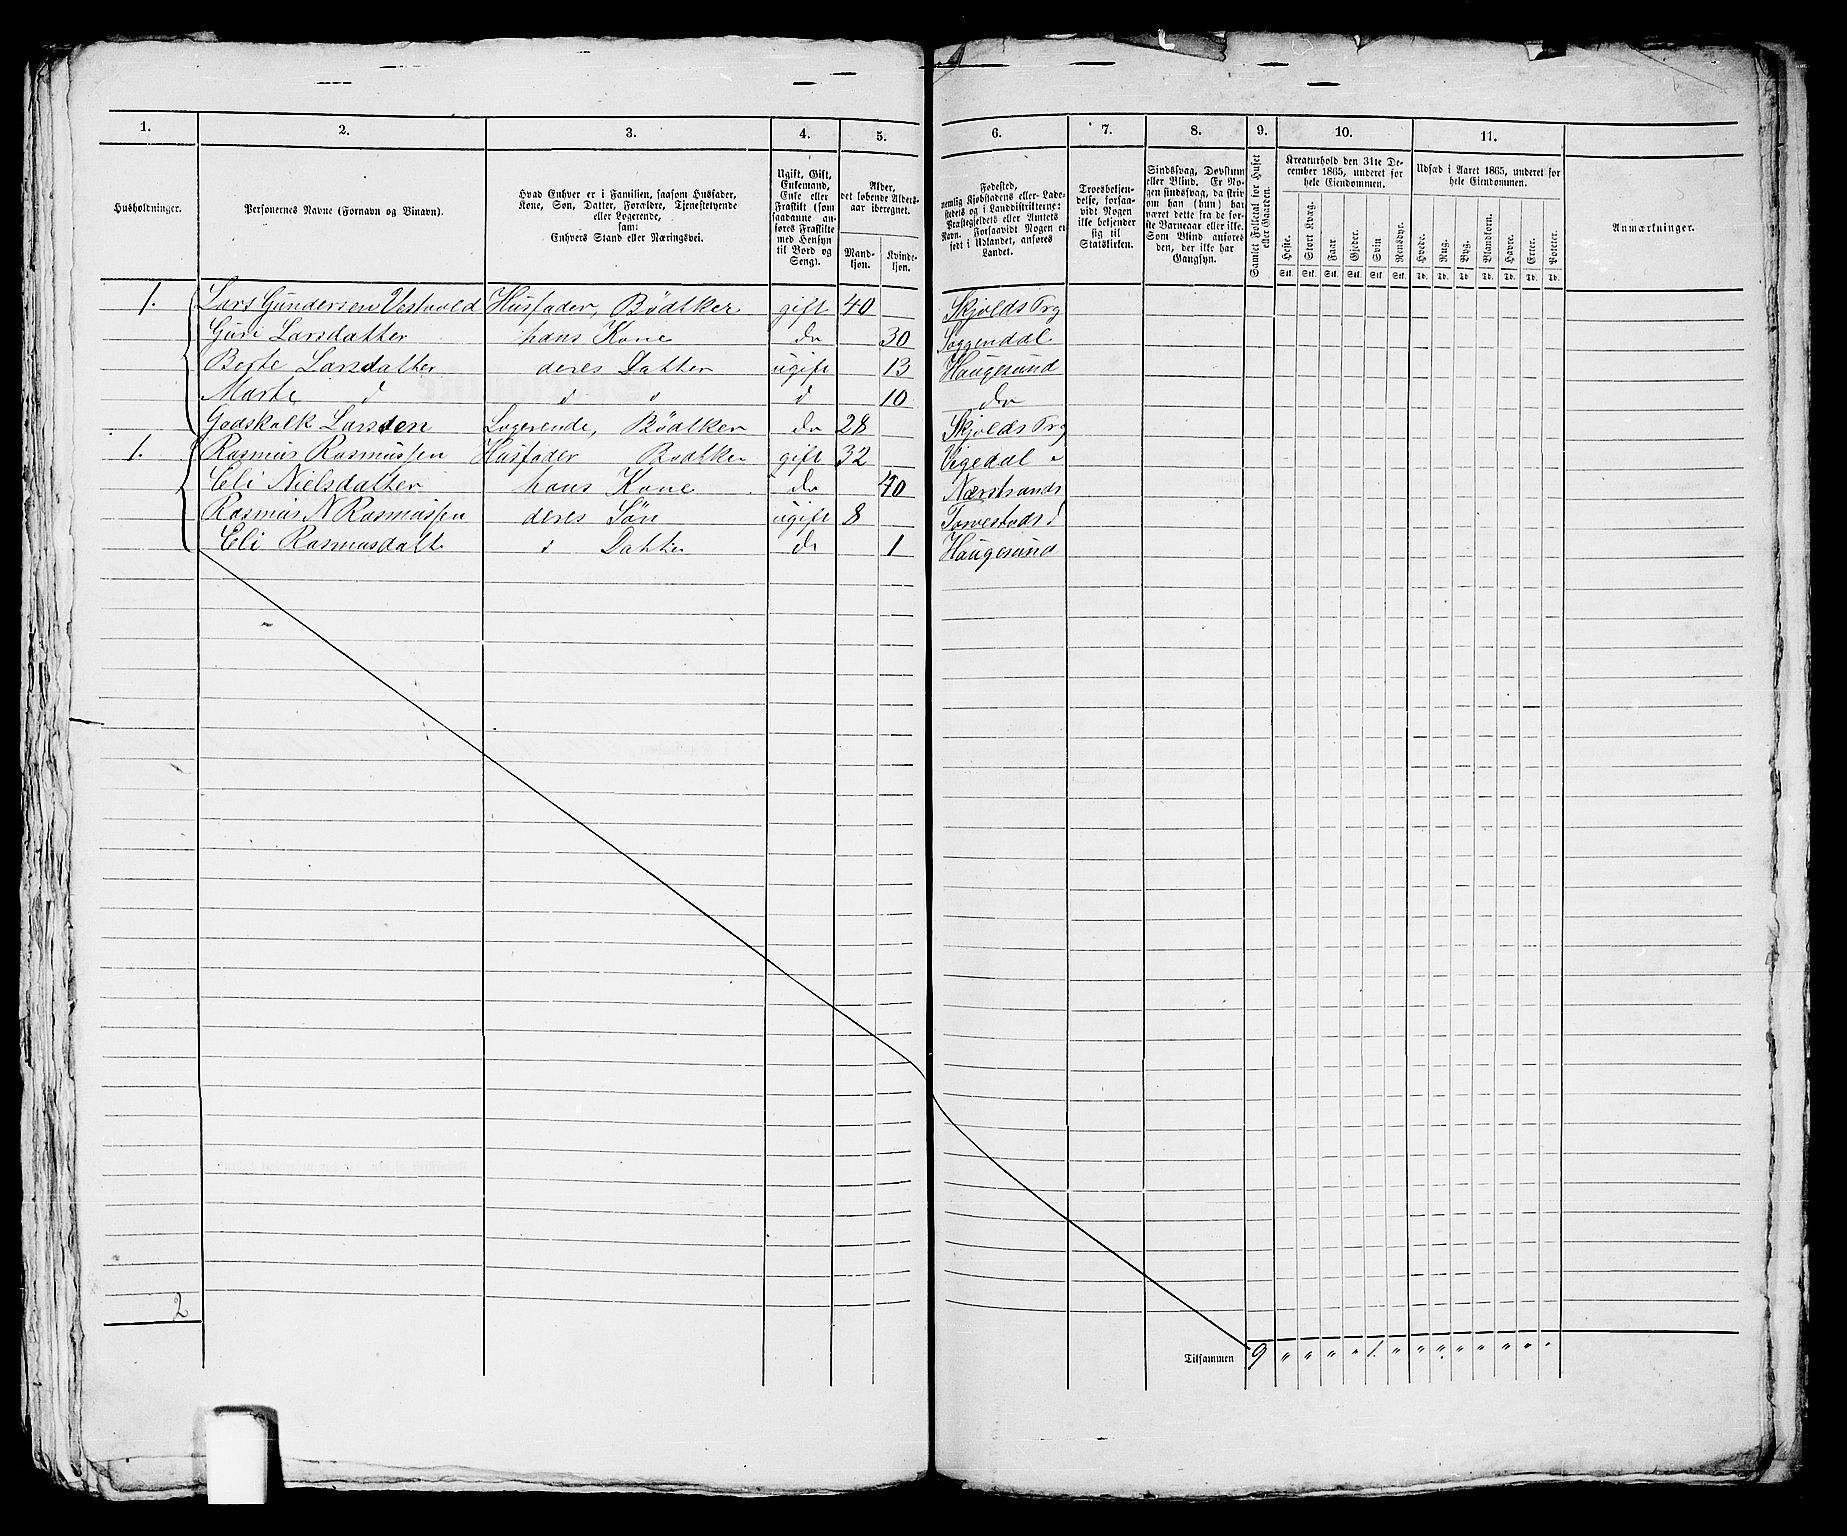 1. 2. 3. 4. 5. 6. 7. 8. 9. 10. 11.
Husholdninger.
Personernes Navne (Fornavn og Binavn).
Hvad Enhver er i Familien, saasom Husfader,
Kone, Søn, Datter, Forældre, Tjenestetyende
eller Logerende,
samt
Enhvers Stand eller Næringsvei.
Ugift, Gift,
Enkemand,
Enke eller
Fraskilt (som
saadanne an-
føres Fraskilte
med Hensyn
til Bord og
Seng).
Alder,
det løbende Alders-
aar iberegnet.
Mand-
kjøn.
Kvinde-
kjøn.
Fødested,
nemlig Kjøbstadens eller Lade-
stedets og i Landdistrikterne:
Præstegjeldets eller Amtets
Navn. Forsaavidt Nogen er
født i Udlandet, anføres
Landet.
Troesbekjen-
delse, forsaa-
vidt Nogen
ikke bekjender
sig til
Statskirken.
Sindssvag, Døvstum
eller Blind. Er No-
gen sindssvag, da skriv
om han (hun) har
været dette fra de før-
ste Barneaar eller ikke.
Som Blind anføres
den, der ikke har
Gangsyn.
Samlet Folketal for Huset
eller Gaarden.
Kreaturhold den 31te De-
cember 1865, underet for
hele Eiendommen.
Heste. Stort Kvæg. Faar. Gjeder. Svin Rensdyr.
Stk. Stk. Stk. Stk. Stk. Stk.
Udsæd i Aaret 1865, underet for
hele Eiendommen.
Hvede. Rug. Byg. Blandkorn. Havre. Erter. Poteter.
Td. Td. Td Td. Td. Td. Td.
Anmærkninger.
1. Lars Gundersen Vestvold Husfader, Bödtker gift 40 Skjolds Prg
Guri Larsdatter hans Kone do 30 Soggendal
Berte Larsdatter deres Datter ugift 13 Haugesund
Marte d d d d 10 do
Godskalk Larsen Logerende, Bödtker do 28 Skjolds Prg
1. Rasmus Rasmussen Husfader Bödtker gift 32 Vigedal "
Eli Nielsdatter hans Kone do 40 Nærstrands
Rasmus N Rasmussen deres Søn ugift 8 Torvestads
Eli Rasmusdatt d Datter do 1 Haugesund
2
Tilsammen 9 " " " " 1 " " " " " " " "